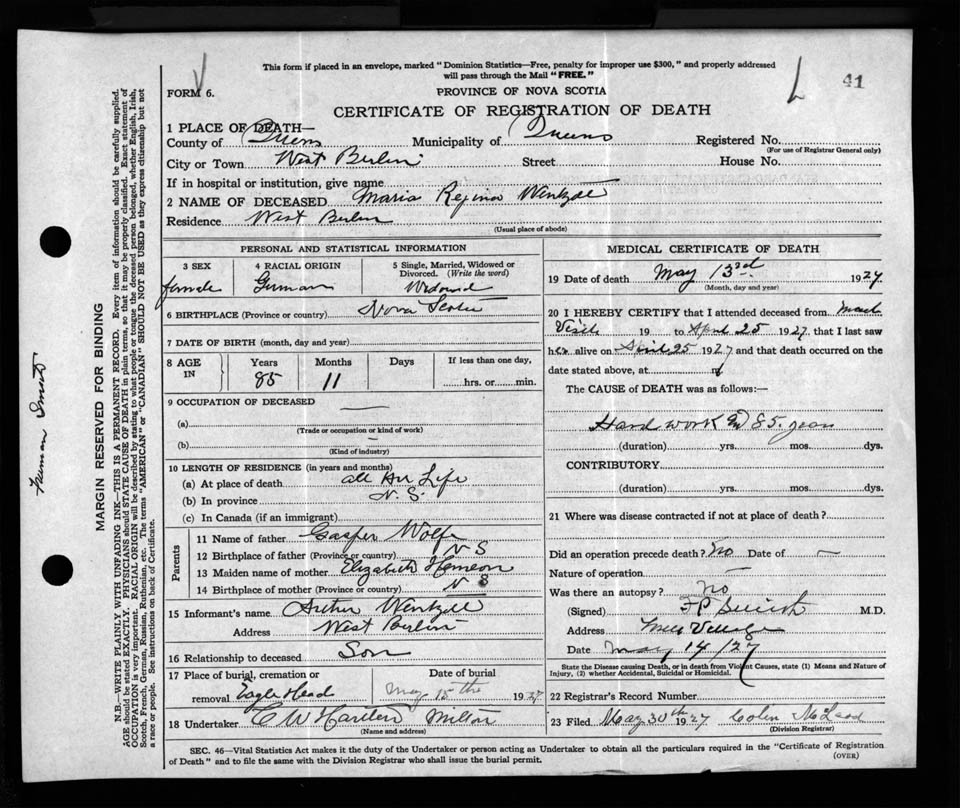 This form if placed in an envelope, marked "Dominion Statistics—Free, penalty for improper use $300," and properly addressed
will pass through the Mail "FREE."
41
FORM 6.
PROVINCE OF NOVA SCOTIA
CERTIFICATE OF REGISTRATION OF DEATH
1 PLACE OF DEATH—
County of Queens Municipality of Queens Registered No.
(For use of Registrar General only)
City or Town West Berlin Street House No.
If in hospital or institution, give name
2 NAME OF DECEASED Maria Regina Wentzell
Residence West Berlin
(Usual place of abode)
PERSONAL AND STATISTICAL INFORMATION
3 SEX 4 RACIAL ORIGIN 5 Single, Married, Widowed or Divorced. (Write the word)
female German Widowed
6 BIRTHPLACE (Province or country) Nova Scotia
7 DATE OF BIRTH (month, day and year)
8 AGE IN Years Months Days If less than one day,
85 11 hrs. or min.
9 OCCUPATION OF DECEASED —
(a)
(Trade or occupation or kind of work)
(b) —
(Kind of industry)
10 LENGTH OF RESIDENCE (in years and months)
(a) At place of death all her Life
(b) In province N. S.
(c) In Canada (if an immigrant)
Parents
11 Name of father Gasper Wolfe
12 Birthplace of father (Province or country) N S
13 Maiden name of mother Elizabeth
14 Birthplace of mother (Province or country) N S
15 Informant's name Arthur Wentzell
Address West Berlin
16 Relationship to deceased Son
17 Place of burial, cremation or removal Eagle Head
Date of burial May 15th 1927
18 Undertaker C W Milton
(Name and address)
MEDICAL CERTIFICATE OF DEATH
19 Date of death May 13rd 1927
(Month, day and year)
20 I HEREBY CERTIFY that I attended deceased from
19 to April 25 1927, that I last saw
her alive on April 25 1927 and that death occurred on the
date stated above, at m
The CAUSE of DEATH was as follows:—
Hard work 85 years
(duration) yrs. mos. dys.
CONTRIBUTORY
(duration) yrs. mos. dys.
21 Where was disease contracted if not at place of death?
Did an operation precede death? No Date of —
Nature of operation —
Was there an autopsy? No
(Signed) F P M.D.
Address Mill Village
Date May 14/27
State the Disease causing Death, or in death from Violent Causes, state (1) Means and Nature of
Injury, (2) whether Accidental, Suicidal or Homicidal.
22 Registrar's Record Number
23 Filed May 30th 1927 Colin McLeod
(Division Registrar)
SEC. 46—Vital Statistics Act makes it the duty of the Undertaker or person acting as Undertaker to obtain all the particulars required in the "Certificate of Registration
of Death" and to file the same with the Division Registrar who shall issue the burial permit.
(OVER)
MARGIN RESERVED FOR BINDING
N.B.—WRITE PLAINLY WITH UNFADING INK—THIS IS A PERMANENT RECORD. Every item of information should be carefully supplied.
AGE should be stated EXACTLY. PHYSICIANS should STATE CAUSE OF DEATH in plain terms, so that it may be properly classified. Exact statement of
OCCUPATION is very important. RACIAL ORIGIN will be described by stating to what people or tongue the deceased person belonged, whether English, Irish,
Scotch, French, German, Russian, Ruthenian, etc. The terms "AMERICAN" or "CANADIAN" SHOULD NOT BE USED as they express citizenship but not
a race or people. See instructions on back of Certificate.